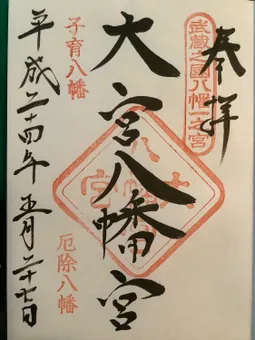 奉拝
武蔵之國八幡一之宮
大宮八幡宮
大宮八幡
子育八幡
厄除八幡
平成二十四年五月二十七日